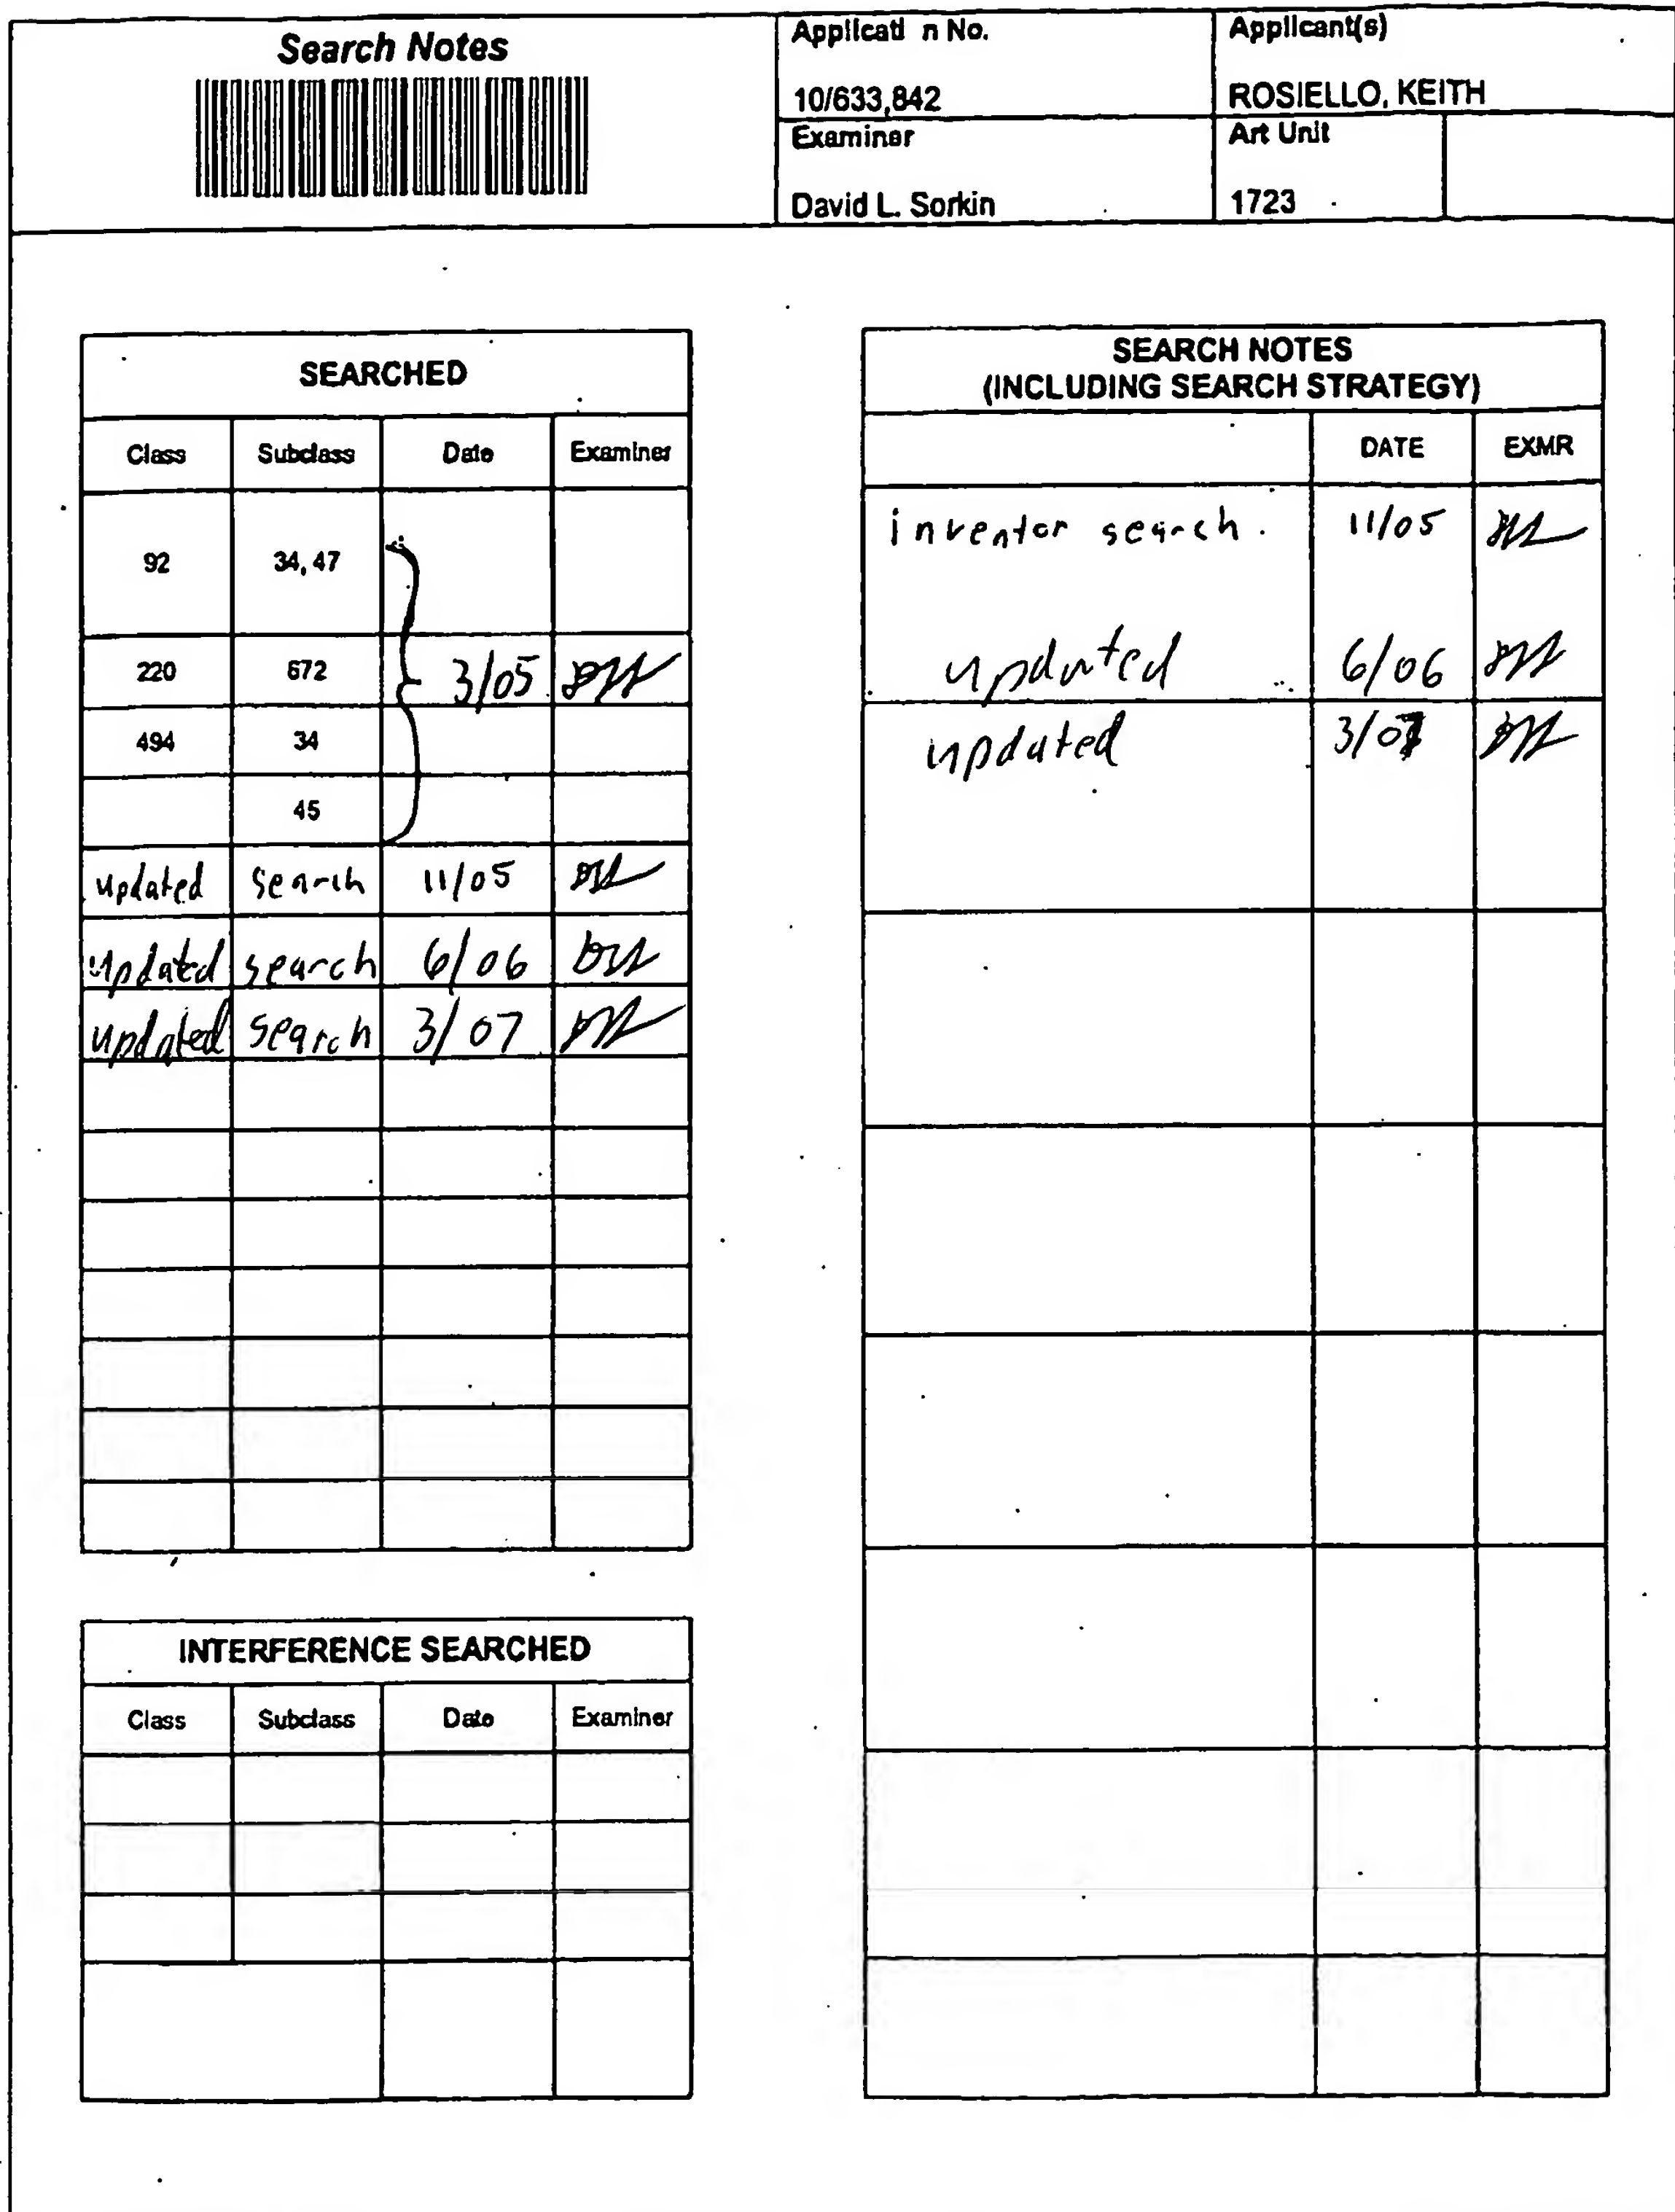 Search Notes
Applicati n No.
Applicant(s)
10/633,842
ROSIELLO, KEITH
Examiner
Art Unit
David L. Sorkin
1723
SEARCHED
Class Subclass Date Examiner
92 34, 47
220 672 3/05
494 34
45
updated search 11/05
updated search 6/06
updated search 3/07
INTERFERENCE SEARCHED
Class Subclass Date Examiner
SEARCH NOTES
(INCLUDING SEARCH STRATEGY)
DATE EXMR
inventor search. 11/05
updated 6/06
updated 3/07